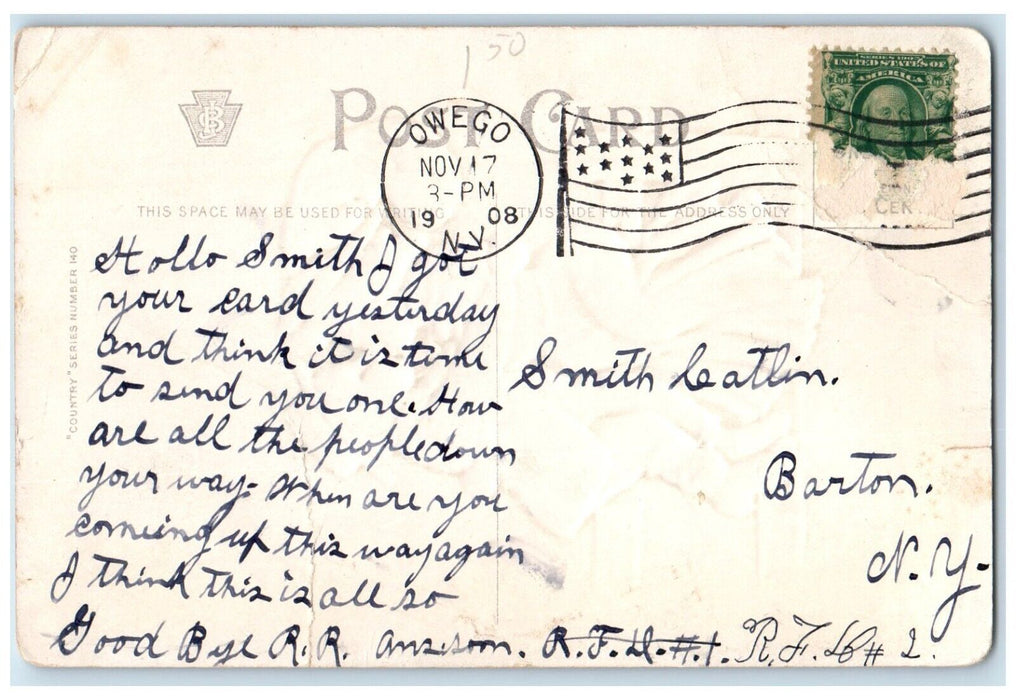 1 50
POST CARD
SERIES 1902
UNITED STATES OF
AMERICA
OWEGO
NOV 17
3-PM
19 08
N.Y.
THIS SPACE MAY BE USED FOR WRITING
THIS SIDE FOR THE ADDRESS ONLY
"COUNTRY" SERIES NUMBER 140
Hollo Smith I got
your card yesterday
and think it is time
to send you one. How
are all the people down
your way. When are you
comeing up this way again
I think this is all so
Good Bye R. R.
Smith Catlin.
Barton.
N. Y.
R.F.D.#.1. R.F.D # 2.